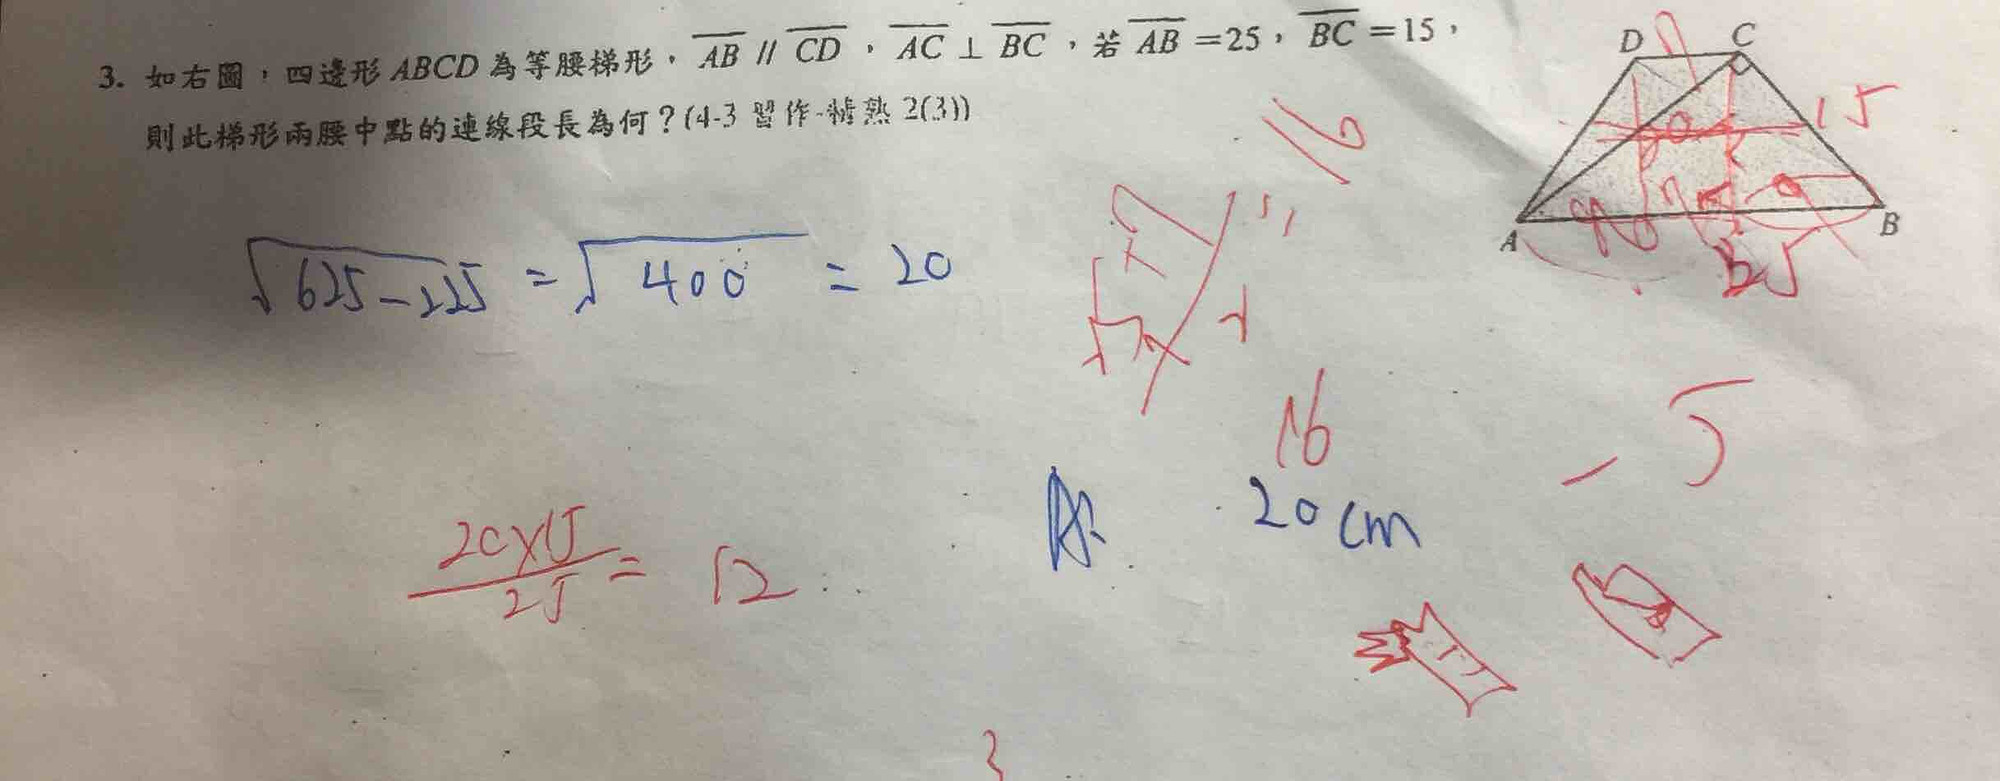 3. 如右圖，四邊形ABCD為等腰梯形，AB // CD，AC ⊥ BC，若 AB =25，BC =15，
則此梯形兩腰中點的連線段長為何？(4-3 習作-精熟 2(3))
D C
15
A B
25
16
√625-225 = √400 = 20
16
-5
A: 20 cm
20×15/25 = 12
3